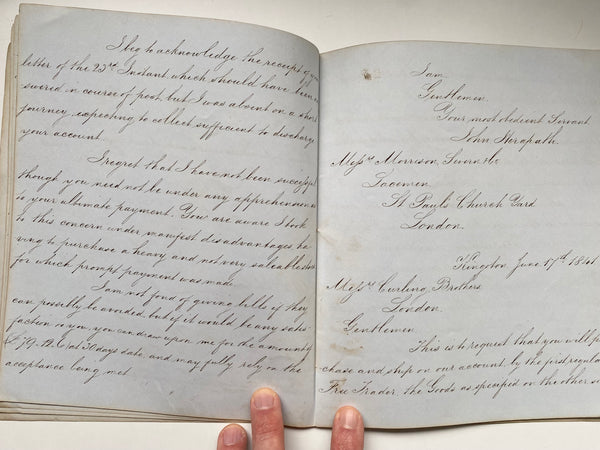 I beg to acknowledge the receipt of your
letter of the 23rd Instant which should have been an
swered in course of post, but I was absent on a short
journey expecting to collect sufficient to discharge
your account.
I regret that I have not been successful
though you need not be under any apprehension as
to your ultimate payment. You are aware I took
to this concern under manifest disadvantages ha
ving to purchase a heavy and not very saleable stock
for which prompt payment was made.
I am not fond of giving bills if they
can possibly be avoided, but if it would be any satis
faction to you, you can draw upon me for the amount of
at 30 days date and may fully rely on the
acceptance being met
I am,
Gentlemen,
Your most obedient Servant
John Herapath.
Messrs Morrison,
Lacemen,
St Pauls Church Yard
London.
Kingston, June 17th
Messrs Curling Brothers
London.
Gentlemen
This is to request that you will p
chase and ship on our account, by the first regula
Free Trader, the Goods as specified on the other s